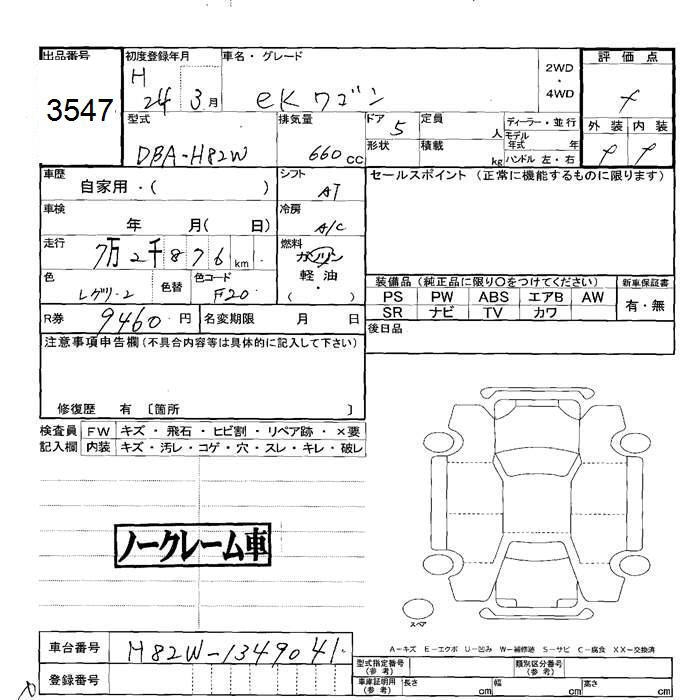 出品番号
3547
初度登録年月
H
24 3月
車名・グレード
eKワゴン
2WD
・
4WD
評価点
外装 内装
型式
DBA-H82W
排気量
660 cc
ドア
5
形状
定員
人
積載
kg
ディーラー・並行
モデル
年式 年
ハンドル 左・右
車歴
自家用・( )
シフト
AT
セールスポイント (正常に機能するものに限ります)
車検
年 月( 日)
冷房
A/C
走行
7万2千876 km
燃料
ガソリン
軽油
・
( )
色
色替
色コード
F20
装備品 (純正品に限り○をつけてください)
PS PW ABS エアB AW
SR ナビ TV カワ
新車保証書
有・無
R券
9460 円
名変期限 月 日
後日品
注意事項申告欄 (不具合内容等は具体的に記入して下さい)
修復歴 有 〔箇所 〕
検査員
記入欄
FW キズ・飛石・ヒビ割・リペア跡・×要
内装 キズ・汚レ・コゲ・穴・スレ・キレ・破レ
ノークレーム車
スペア
A-キズ E-エクボ U-凹み W-補修跡 S-サビ C-腐食 XX-交換済
車台番号
H82W-1349041
登録番号
型式指定番号
(参考)
類別区分番号
(参考)
車庫証明用
(参考)
長さ cm 幅 cm 高さ cm